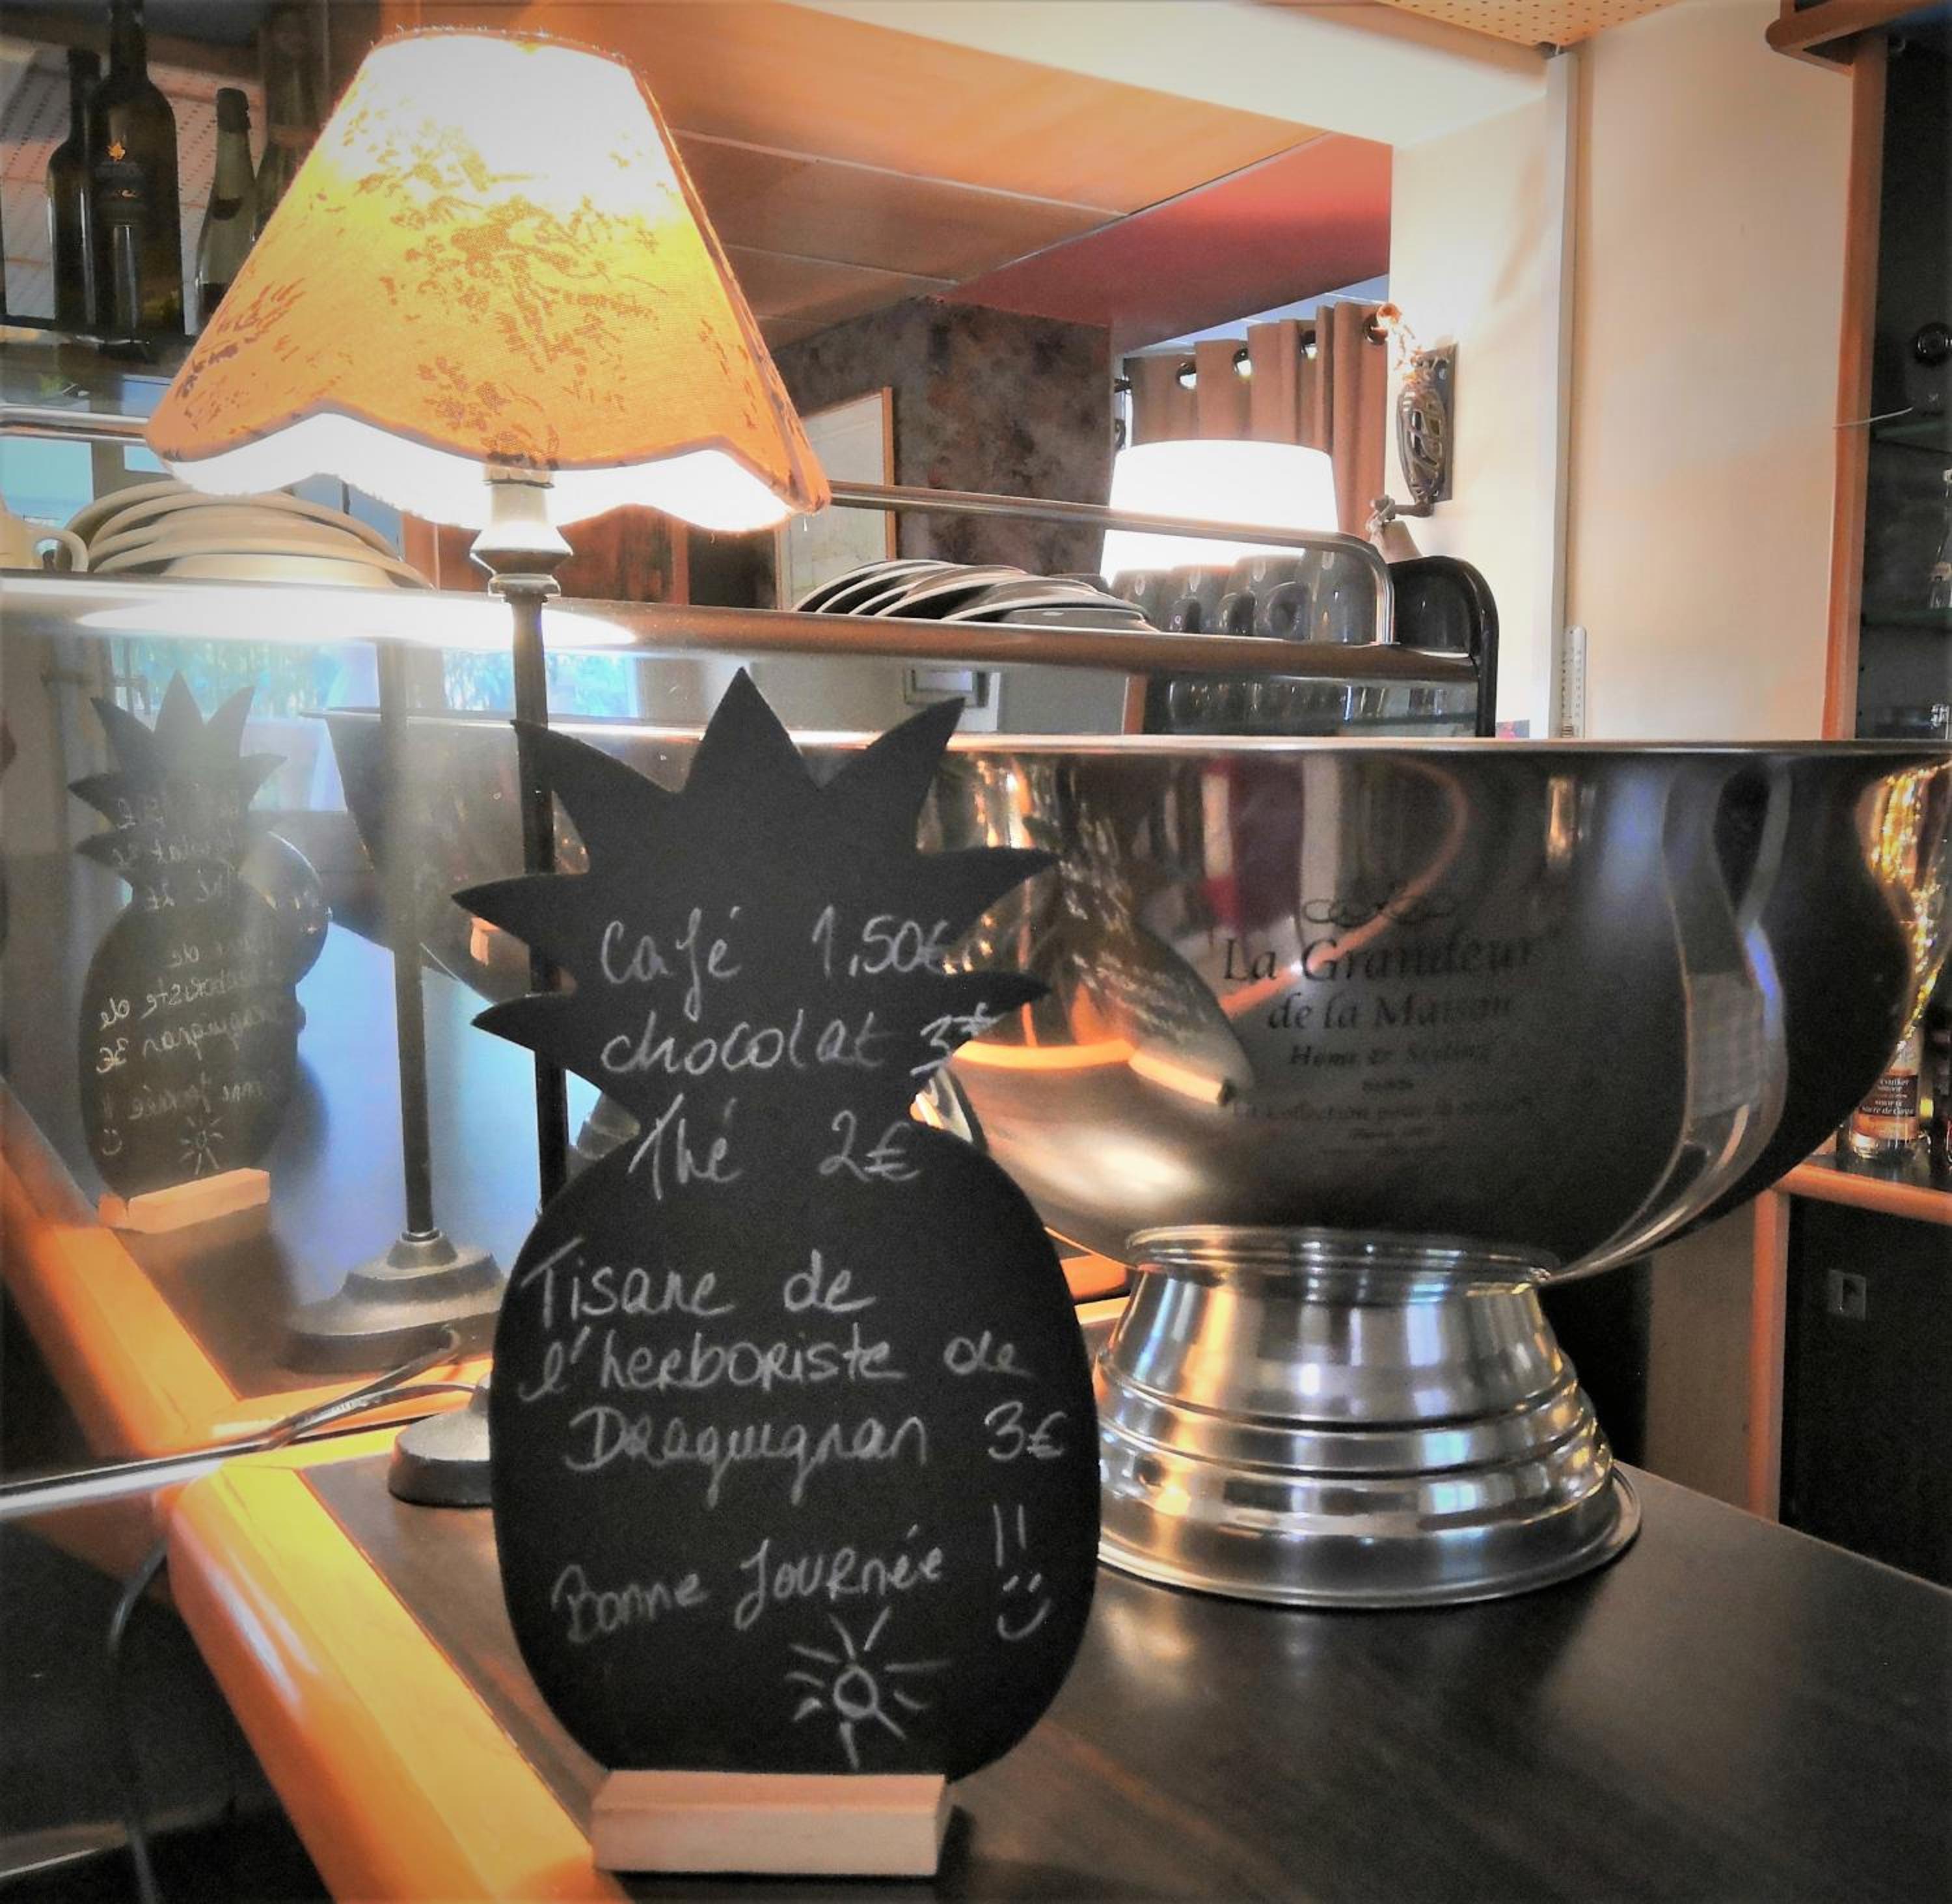 Café 1,50€
chocolat 3€
Thé 2€
Tisane de
l'herboriste de
Draguignan 3€
Bonne Journée !!
La Grandeur
de la Maison
Home & Styling